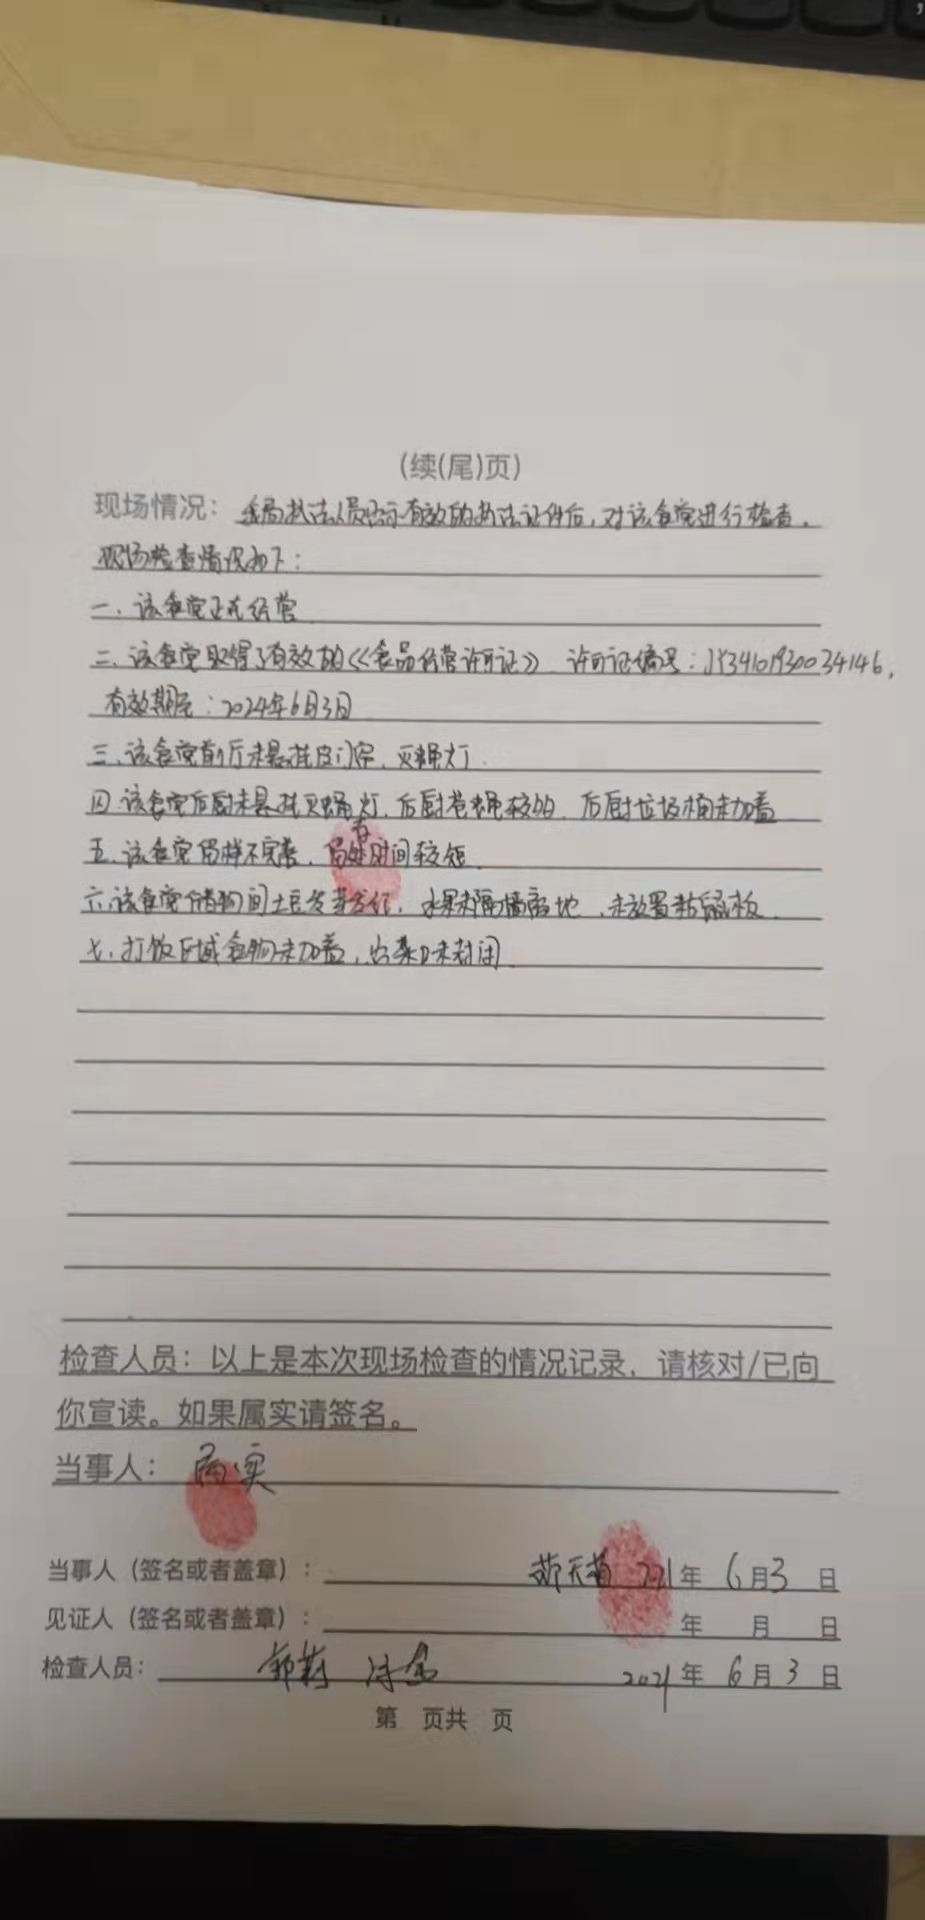 (续(尾)页)
现场情况：我局执法人员出示有效的执法证件后，对该食堂进行检查，
现场检查情况如下：
一、该食堂正在经营
二、该食堂取得了有效的《食品经营许可证》 许可证编号：JY34101930034146，
有效期至：2024年6月3日
三、该食堂前厅未悬挂皮门帘，灭蝇灯．
四、该食堂后厨未悬挂灭蝇灯，后厨苍蝇较多，后厨垃圾桶未加盖
五、该食堂留样不完善，留存时间较短
六、该食堂储物间土豆发芽，水果未隔墙离地，未放置粘鼠板
七、打饭区域食物未加盖，出菜口未封闭
检查人员：以上是本次现场检查的情况记录，请核对/已向
你宣读。如果属实请签名。
当事人：属实
当事人（签名或者盖章）： 2021年 6月3 日
见证人（签名或者盖章）： 年 月 日
检查人员： 2021年 6月3日
第 页共 页